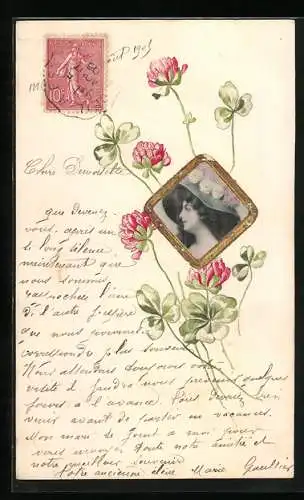 10c
août 1905
Chère Demoiselle
que devenez
vous, après un
si long silence
maintenant que
nous sommes
rapprochées l'une
de l'autre j'espère
que nous pourrons
correspondre plus souvent
Nous attendons toujours votre
visite il faudra nous prévenir quelques
jours à l'avance. Vous devriez bien
venir avant de partir en vacances.
Mon mari se joint à moi pour
vous envoyer toute notre amitié et
notre meilleur souvenir
Votre ancienne élève Marie Gaultier